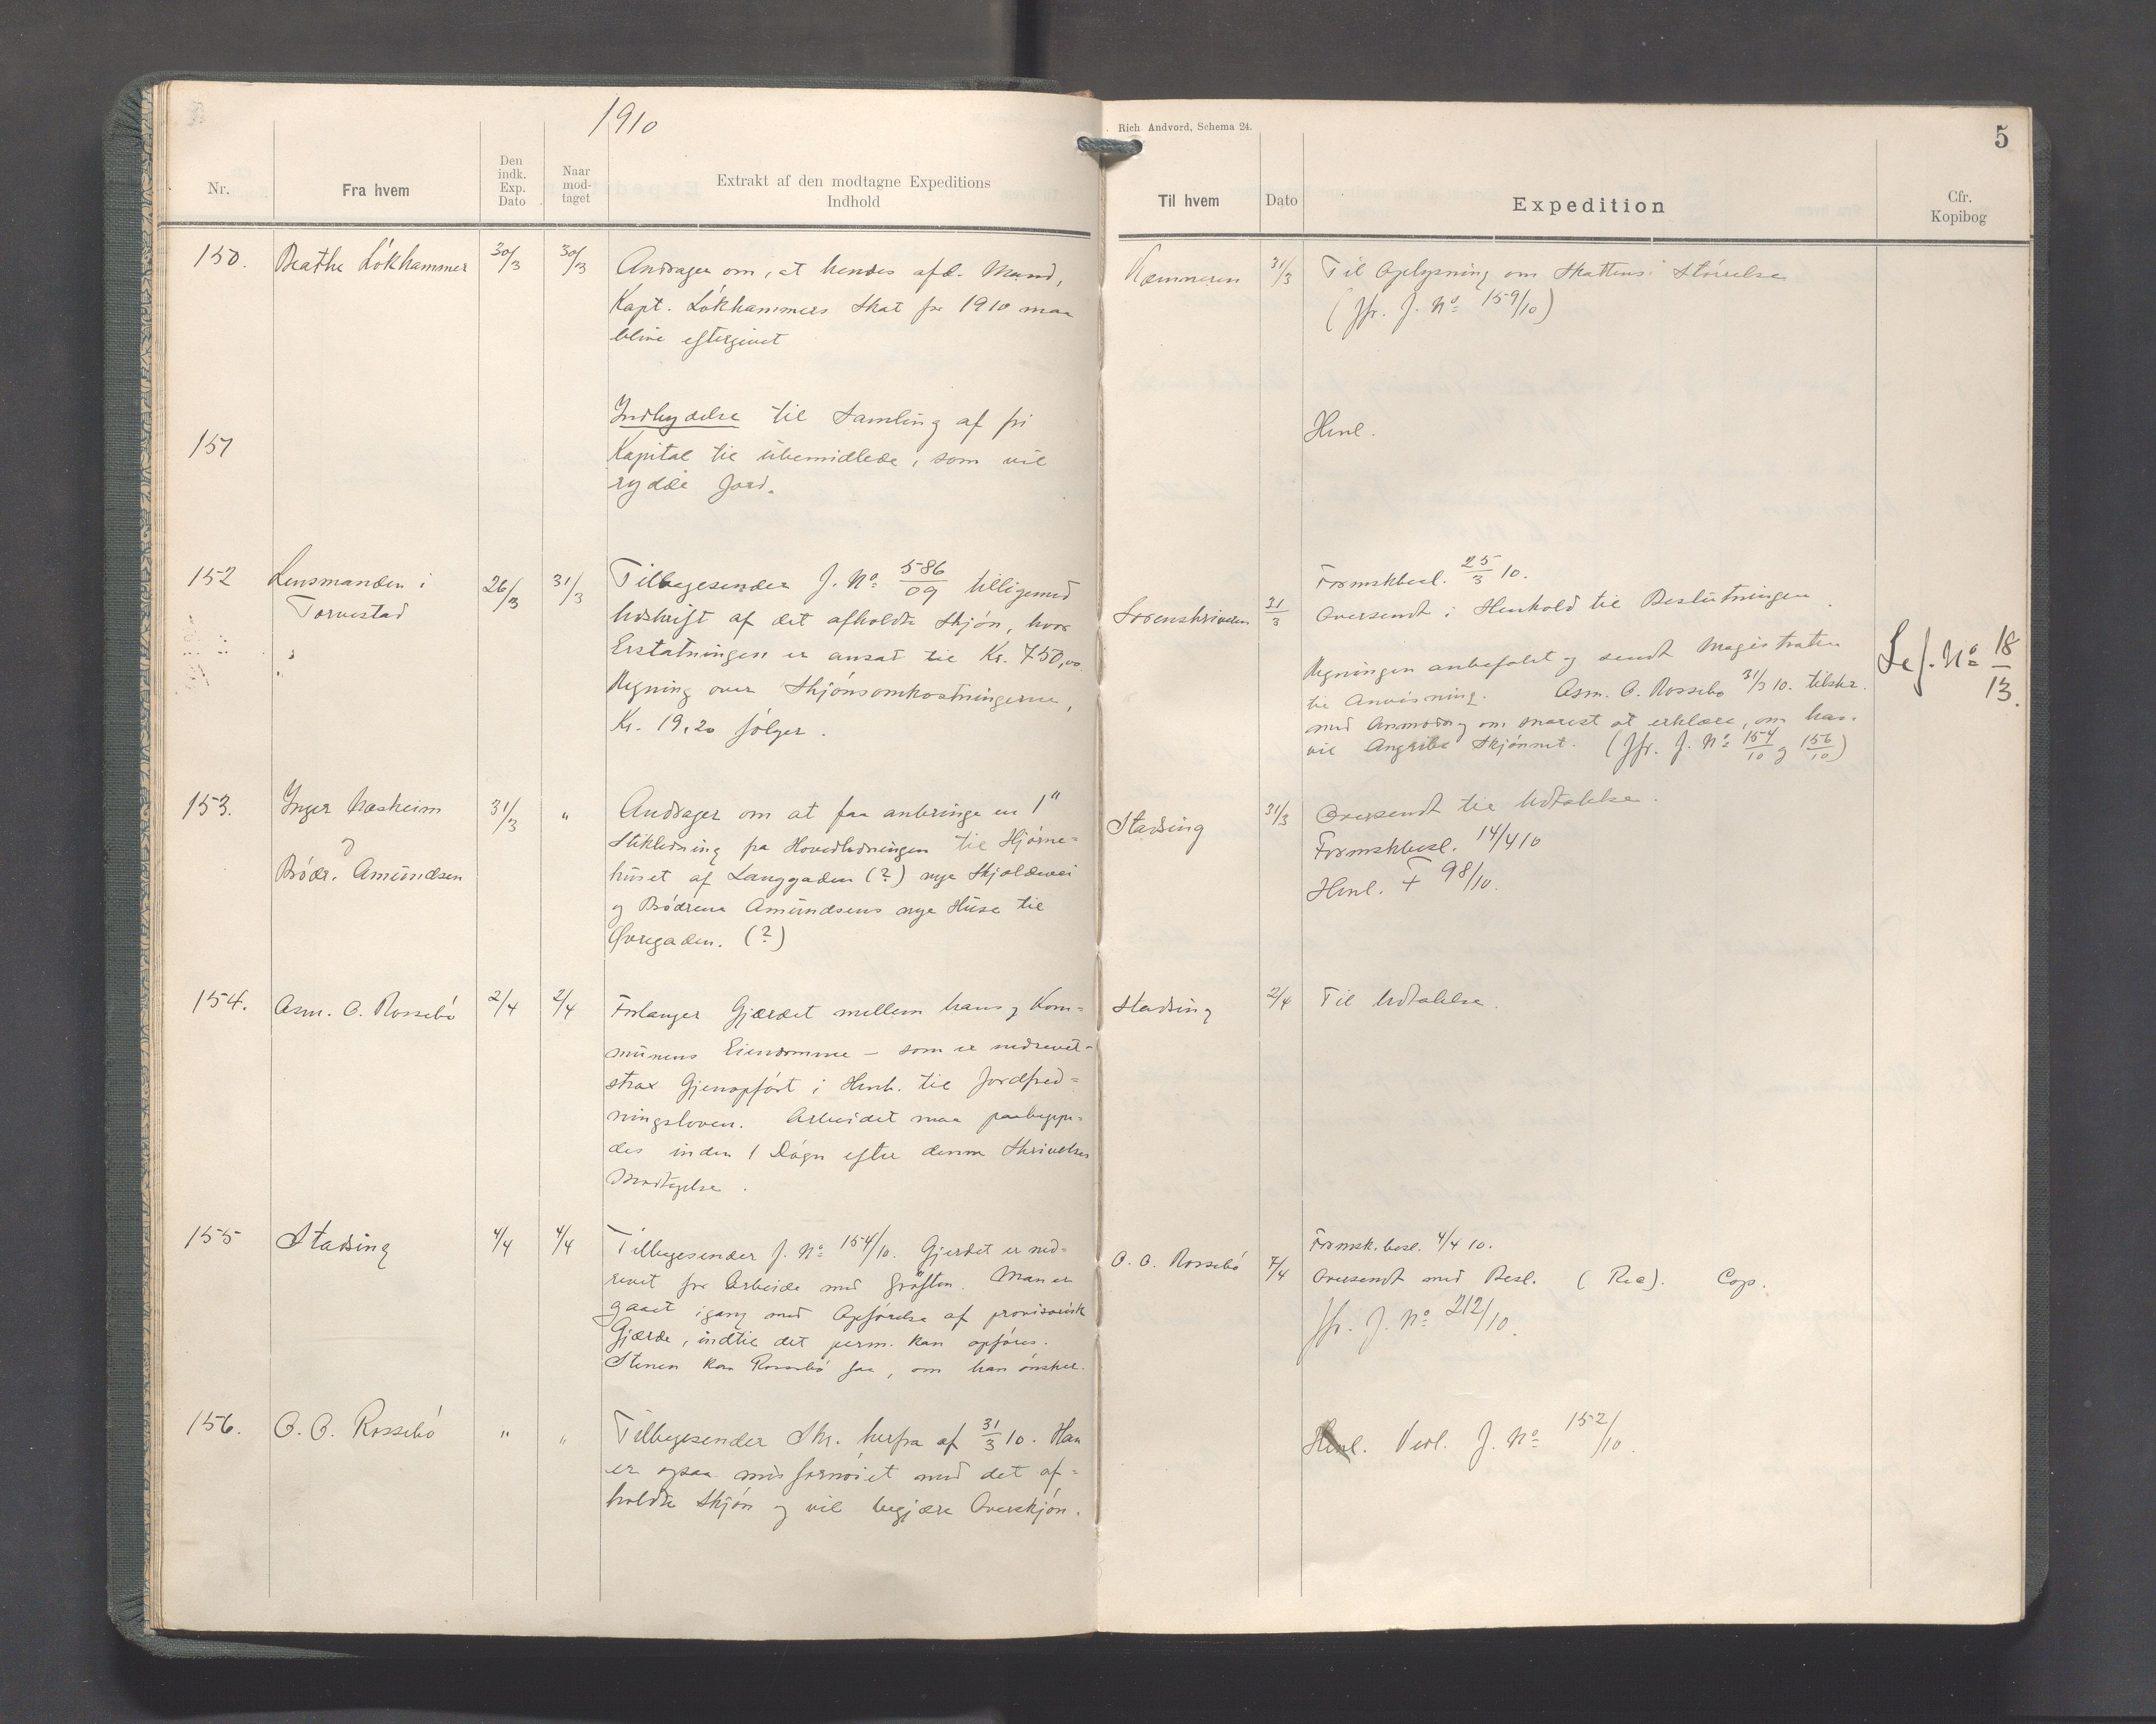 1910
Rich Andvord, Schema 24.
5
Nr.
Fra hvem
Den indk. Exp. Dato
Naar mod- taget
Extrakt af den modtagne Expeditions Indhold
Til hvem
Dato
Expedition
Cfr. Kopibog
150.
Beathe Lökhammer
30/3
30/3
Andrager om, at hendes afd. Mand,
Kapt. Lökhammers Skat for 1910 maa
blive eftergivet
Kæmneren
31/3
Til Oplysning om Skattens Størrelse
(Jfr. J. No 159/10)
151
Indbydelse til Samling af fri
Kapital til übemidlede, som vil
rydde Jord.
Henl.
152
Lensmanden i
Torvestad
26/3
31/3
Tilbagesender J. No 586/09 tilligemed
Udskrift af det afholdte Skjön, hvor
Erstatningen er ansat til Kr. 750,00.
Regning over Skjönsomkostningerne,
Kr. 19,20 følger.
Sorenskriveren
31/3
Formskbesl. 25/3 10.
Oversendt i Henhold til Beslutningen.
Regningen anbefalet og sendt Magistraten
til Anvisning. Asm. O. Rossebø 31/3 10. tilskr.
med Anmodng om snarest at erklære, om han
vil Angribe Skjønnet. (Jfr. J. No 154/10 og 156/10)
Se J. No 18/13.
153.
Inger Aasheim
og
Brödr. Amündsen
31/3
"
Andrager om at faa anbringe en 1"
Stikledning fra Hovedledningen til Hjörne=
hüset af Langgaden (?) nye Skjoldevei
og Brödrene Amündsens nye Hüse til
Øvregaden. (?)
Stadsing
31/3
Oversendt til Udtalelse.
Formskbesl. 14/4 10
Henl. F 98/10.
154.
Asm. O. Rossebö
2/4
2/4
Forlanger Gjærdet mellem hans og Kom=
münens Eiendomme – som er nedrevet –
strax Gjenopført i Henh. til Jordfred=
ningsloven. Arbeidet maa paabegyn=
des inden 1 Dögn efter denne Skrivelses
Modtagelse.
Stadsing
2/4
Til Udtalelse.
155
Stadsing
4/4
4/4
Tilbagesender J. No 154/10. Gjerdet er ned=
revet for Arbeide med Gröften. Man er
gaaet igang med Opförelse af provisorisk
Gjærde, indtil det perm. kan opföres.
Stenen kan Rossebö faa, om han önsker.
O. O. Rossebö
7/4
Formsk.besl. 4/4 10.
Oversendt med Besl. (Rec). Cop.
Jfr. J. No 212/10.
156.
O. O. Rossebö
"
"
Tilbagesender Skr. herfra af 31/3 10. Han
er ogsaa misfornöiet med det af=
holdte Skjön og vil begjære Overskjön.
Henl. Vedl. J. No 152/10.